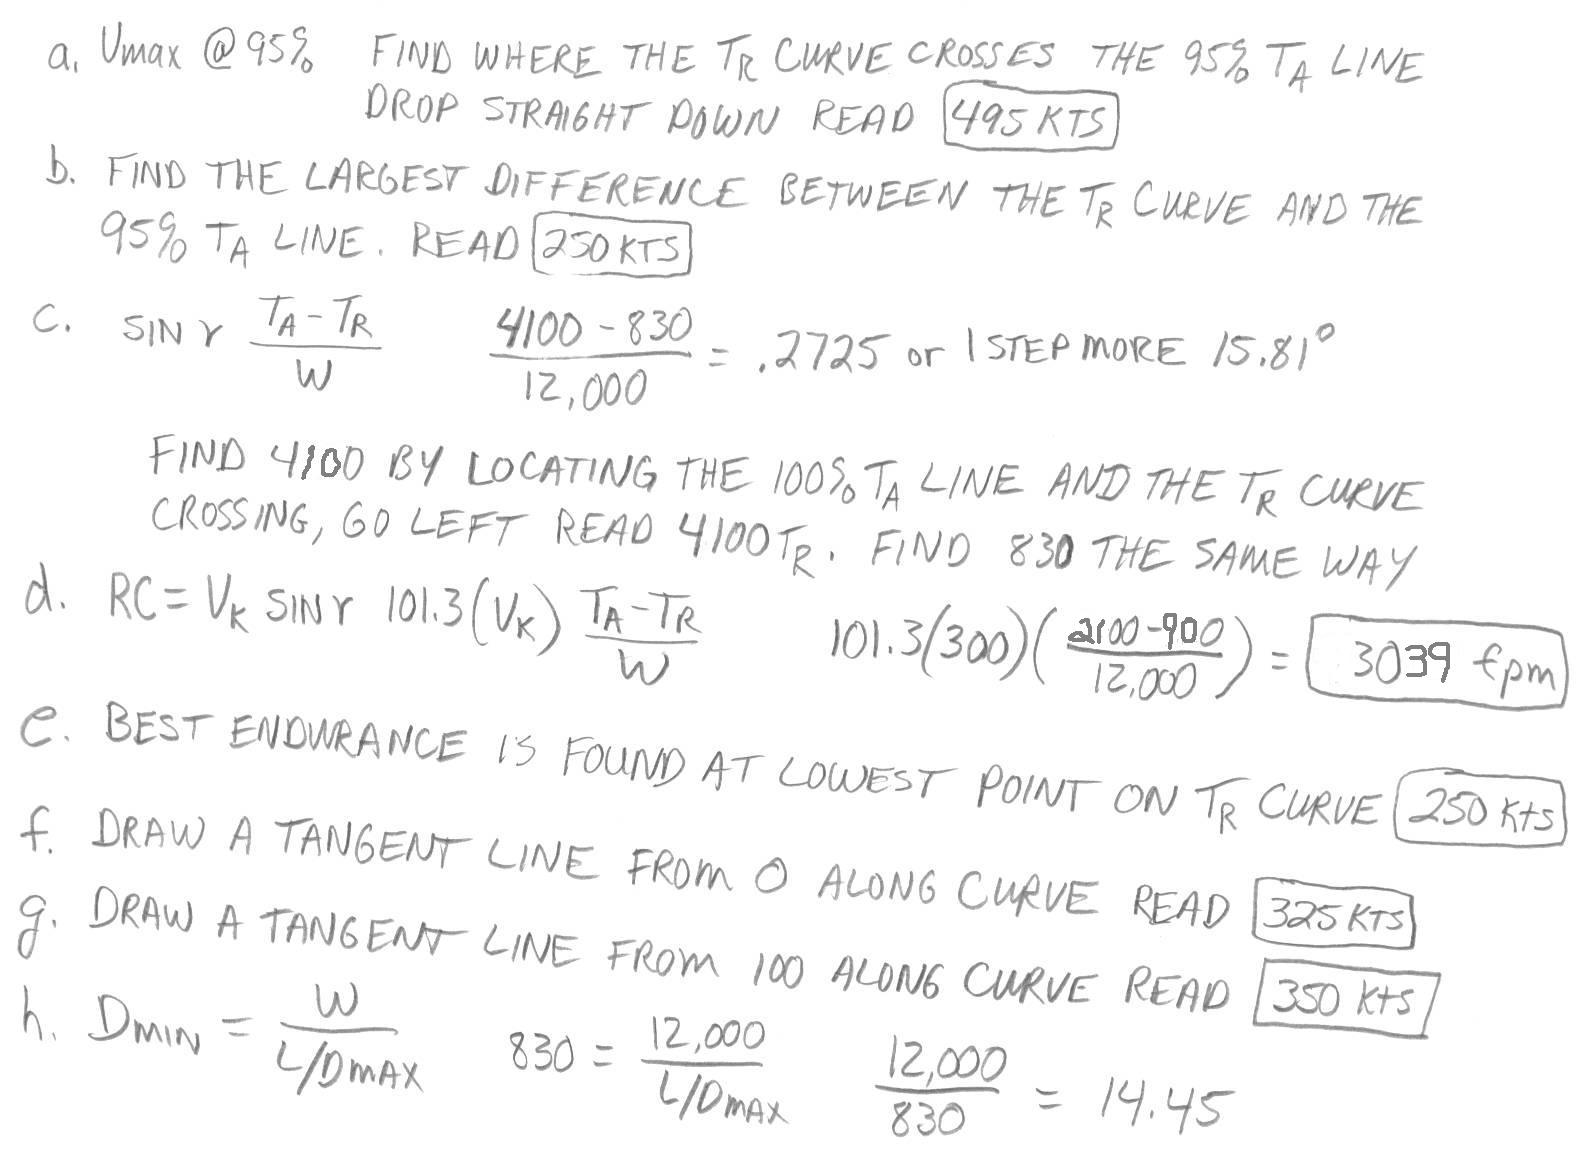 a. Vmax @ 95% FIND WHERE THE TR CURVE CROSSES THE 95% TA LINE
DROP STRAIGHT DOWN READ 495 KTS
b. FIND THE LARGEST DIFFERENCE BETWEEN THE TR CURVE AND THE
95% TA LINE. READ 250 KTS
c. SIN γ TA-TR / W 4100-830 / 12,000 = .2725 or 1 STEP MORE 15.81°
FIND 4100 BY LOCATING THE 100% TA LINE AND THE TR CURVE
CROSSING, GO LEFT READ 4100 TR. FIND 830 THE SAME WAY
d. RC = VK SIN γ 101.3 (VK) TA-TR / W 101.3(300)(2100-900 / 12,000) = 3039 fpm
e. BEST ENDURANCE IS FOUND AT LOWEST POINT ON TR CURVE 250 Kts
f. DRAW A TANGENT LINE FROM 0 ALONG CURVE READ 325 KTS
g. DRAW A TANGENT LINE FROM 100 ALONG CURVE READ 350 Kts
h. DMIN = W / L/DMAX 830 = 12,000 / L/DMAX 12,000 / 830 = 14.45